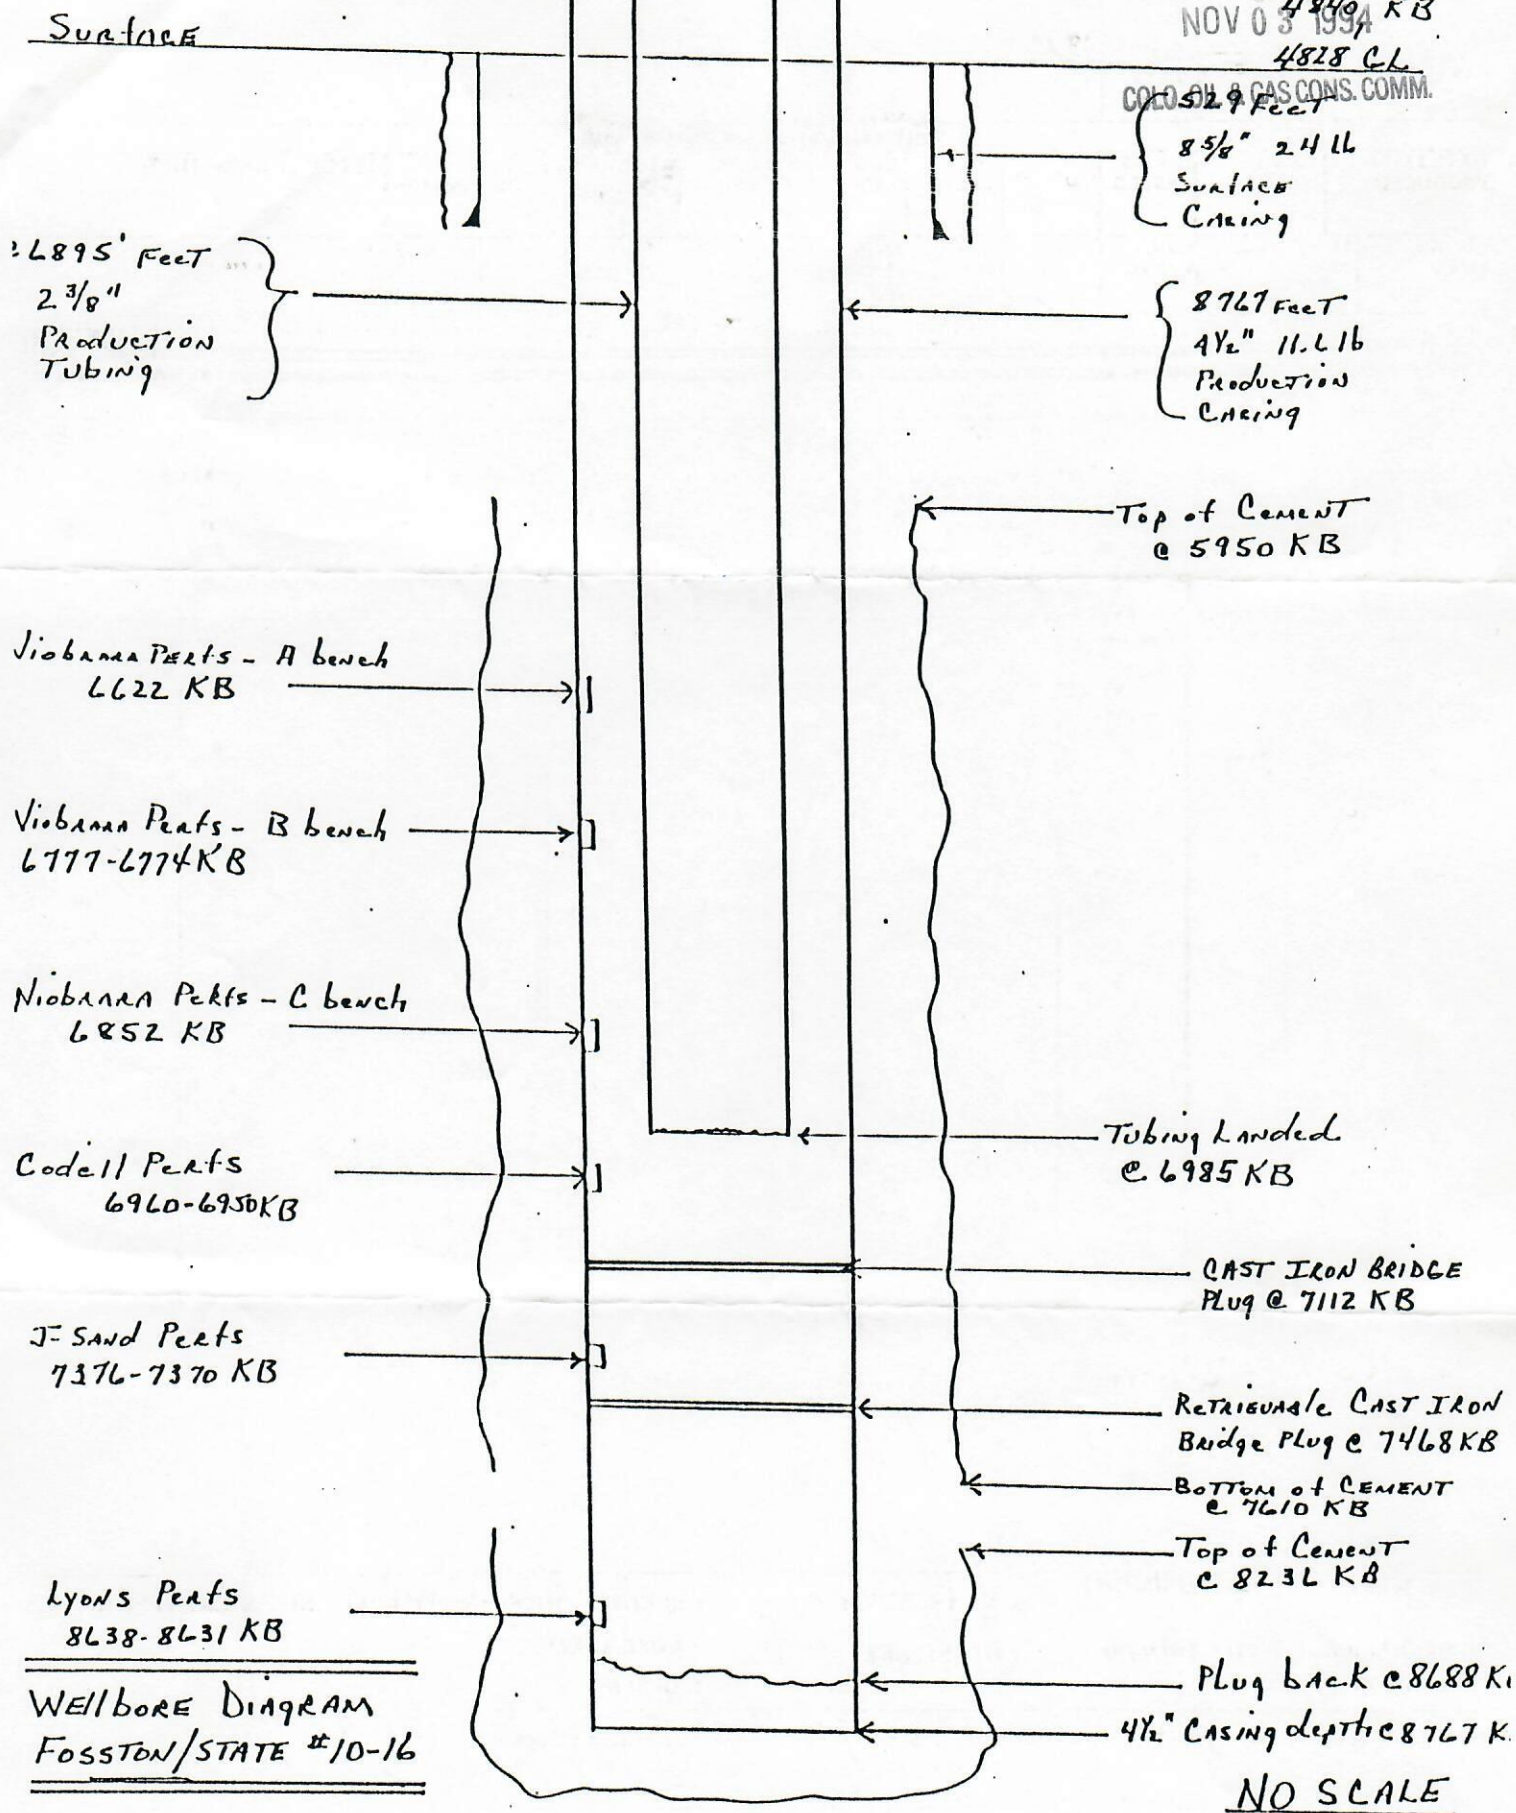 Surface
4840 KB
NOV 03 1994
4828 GL
COLO. OIL & GAS CONS. COMM.
529 Feet
8 5/8" 24 lb
Surface
Casing
6895' Feet
2 3/8"
Production
Tubing
8767 Feet
4½" 11.6 lb
Production
Casing
Top of Cement
@ 5950 KB
Niobrara Perfs - A bench
6622 KB
Niobrara Perfs - B bench
6777-6774 KB
Niobrara Perfs - C bench
6852 KB
Tubing Landed
@ 6985 KB
Codell Perfs
6960-6950 KB
CAST IRON BRIDGE
Plug @ 7112 KB
J-Sand Perfs
7376-7370 KB
Retrievable Cast Iron
Bridge Plug @ 7468 KB
Bottom of Cement
@ 7610 KB
Top of Cement
@ 8236 KB
Lyons Perfs
8638-8631 KB
Plug back @ 8688 K
4½" Casing depth @ 8767 K
Wellbore Diagram
Fosston/State #10-16
NO SCALE